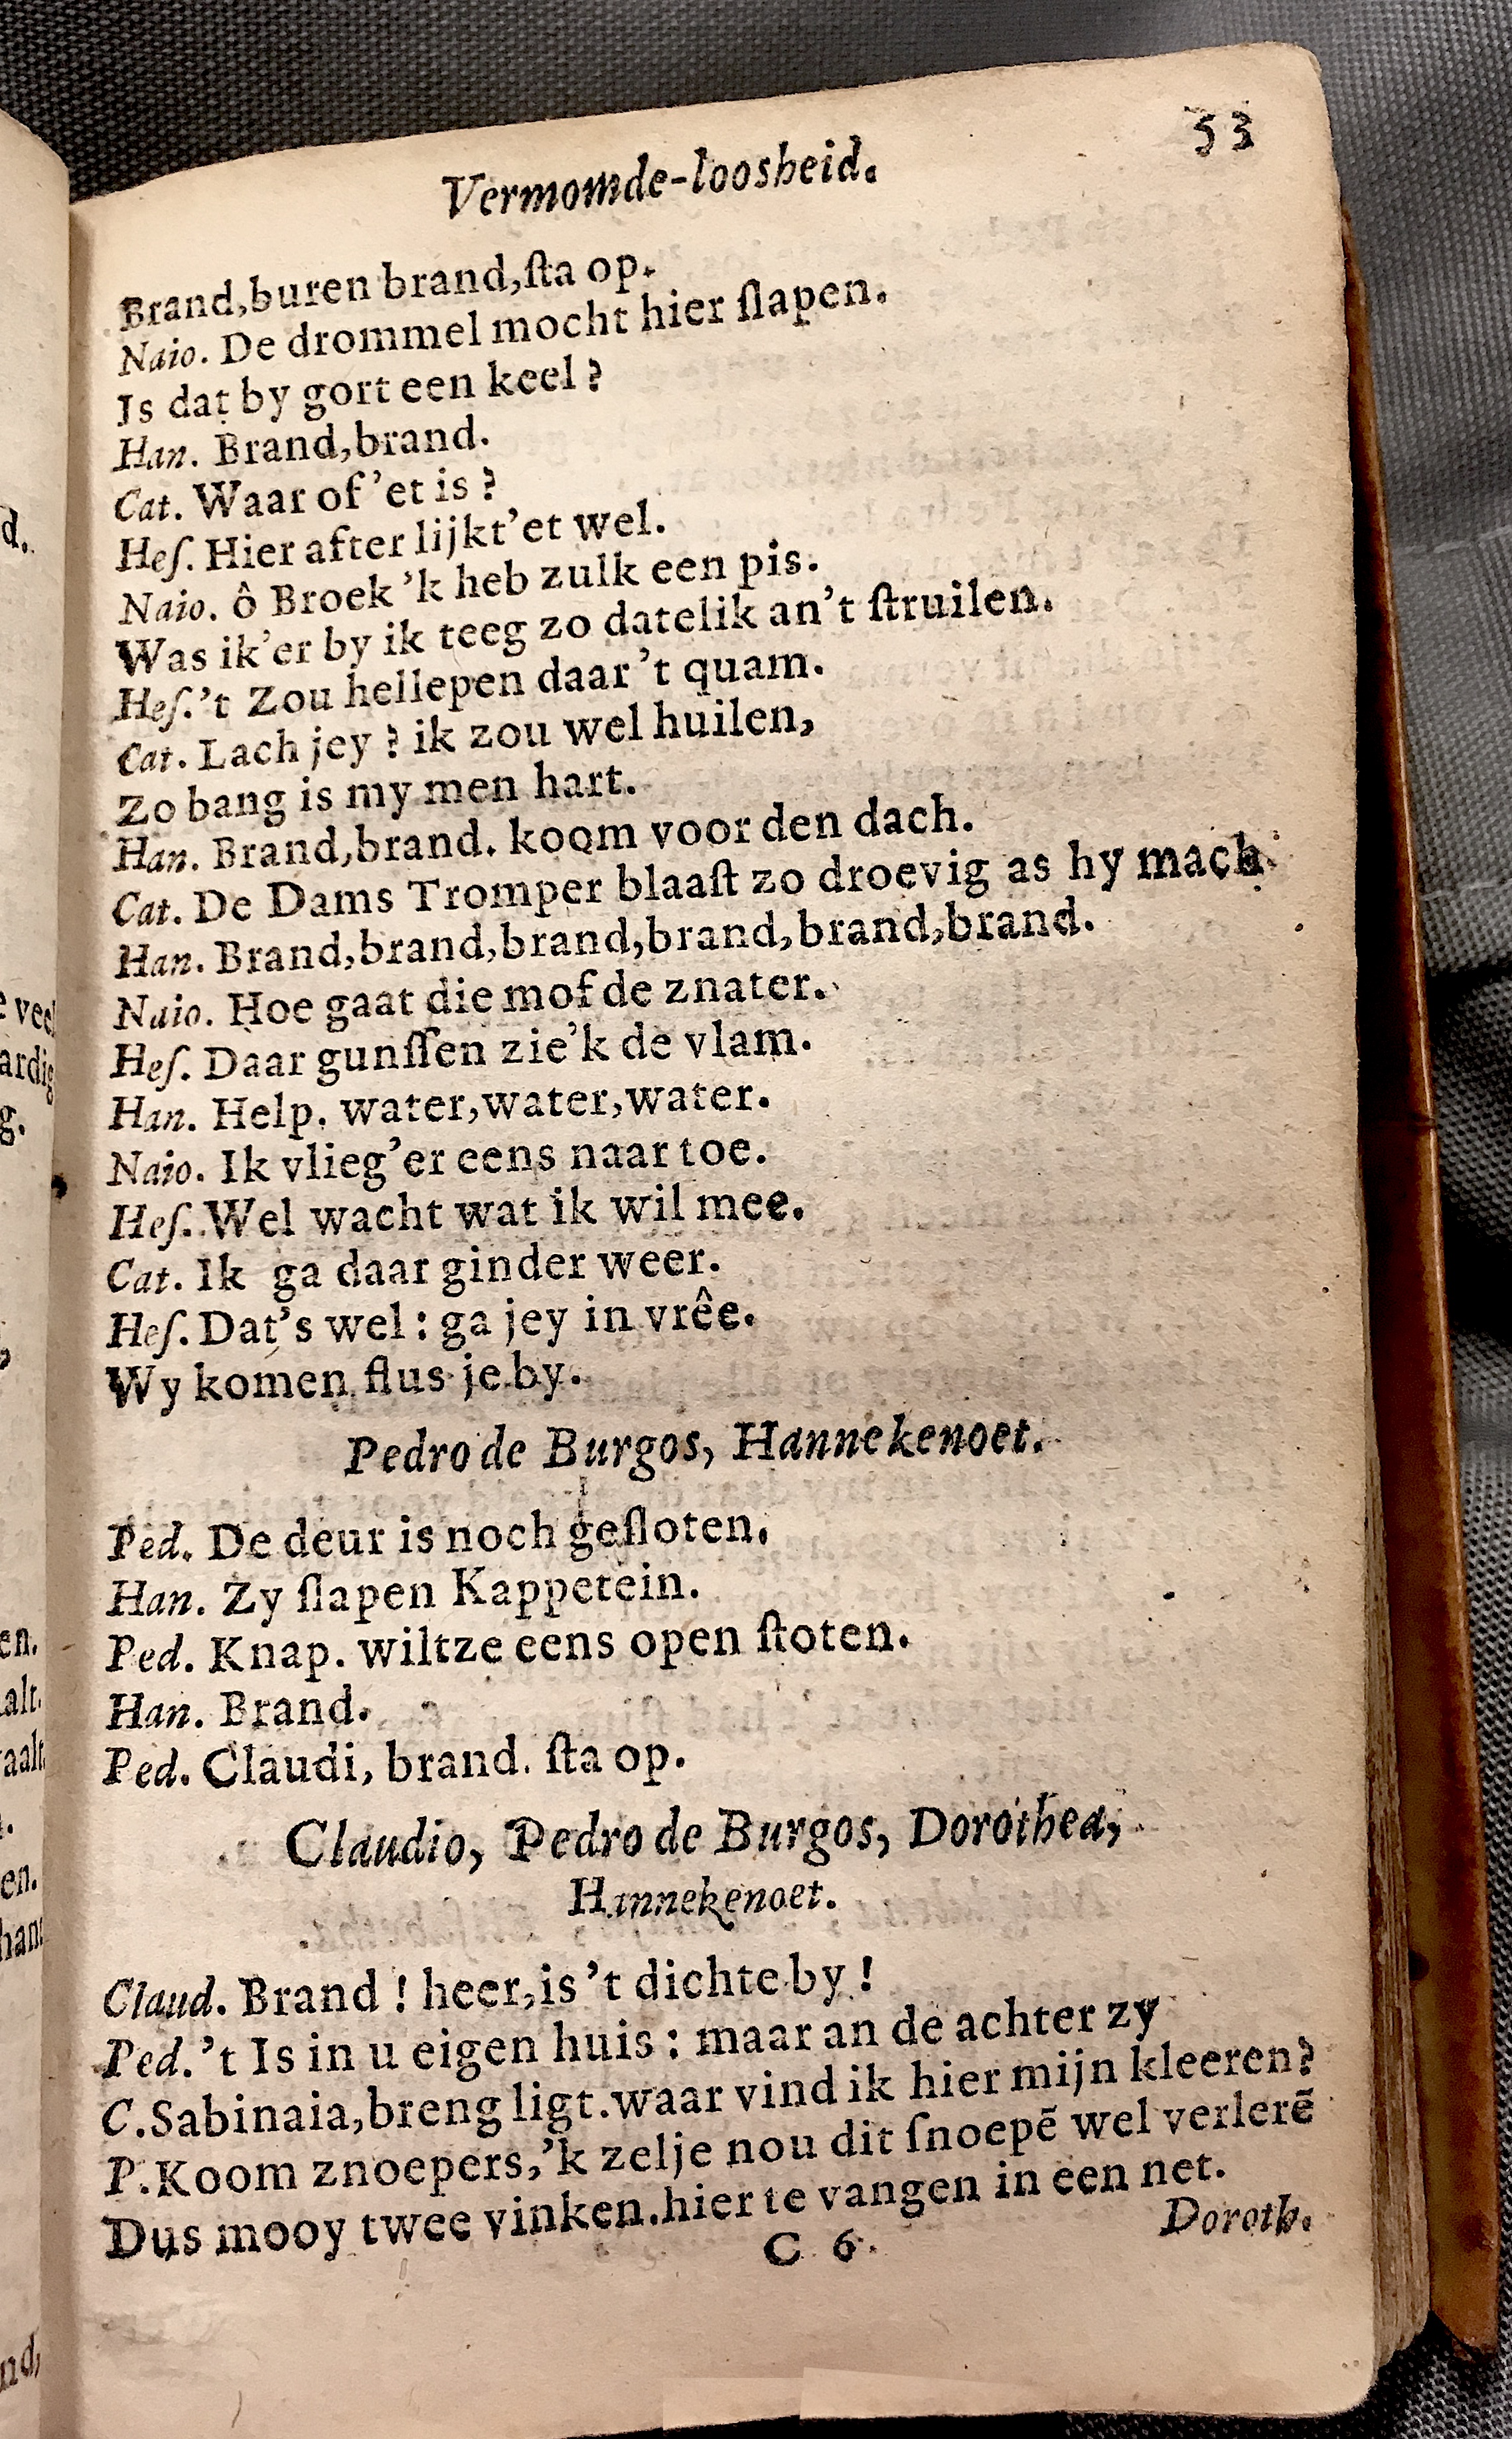 53
Vermomde-loosheid.
Brand,buren brand,ſta op.
Naio. De drommel mocht hier ſlapen.
Is dat by gort een keel ?
Han. Brand,brand.
Cat. Waar of ’et is ?
Heſ. Hier after lijkt’et wel.
Naio. ô Broek ’k heb zulk een pis.
Was ik’er by ik teeg zo datelik an’t ſtruilen.
Heſ.’t Zou hellepen daar ’t quam.
Cat. Lach jey ? ik zou wel huilen,
Zo bang is my men hart.
Han. Brand,brand. koom voor den dach.
Cat. De Dams Tromper blaaſt zo droevig as hy mach
Han. Brand,brand,brand,brand,brand,brand.
Naio. Hoe gaat die mof de znater.
Heſ. Daar gunſſen zie’k de vlam.
Han. Help. water,water,water.
Naio. Ik vlieg’er eens naar toe.
Heſ. Wel wacht wat ik wil mee.
Cat. Ik ga daar ginder weer.
Heſ. Dat’s wel : ga jey in vrêe.
Wy komen flus je by.
Pedro de Burgos, Hannekenoet.
Ped. De deur is noch geſloten.
Han. Zy ſlapen Kappetein.
Ped. Knap. wiltze eens open ſtoten.
Han. Brand.
Ped. Claudi, brand. ſta op.
Claudio, Pedro de Burgos, Dorothea,
Hannekenoet.
Claud. Brand ! heer,is ’t dichte by !
Ped.’t Is in u eigen huis : maar an de achter zy
C.Sabinaia,breng ligt.waar vind ik hier mijn kleeren?
P.Koom znoepers,’k zelje nou dit ſnoepē wel verlerē
Dus mooy twee vinken.hier te vangen in een net.
C 6.
Doroth.
d.
vee
ardig
g.
en.
alt.
aalt
en.
hand
nd,